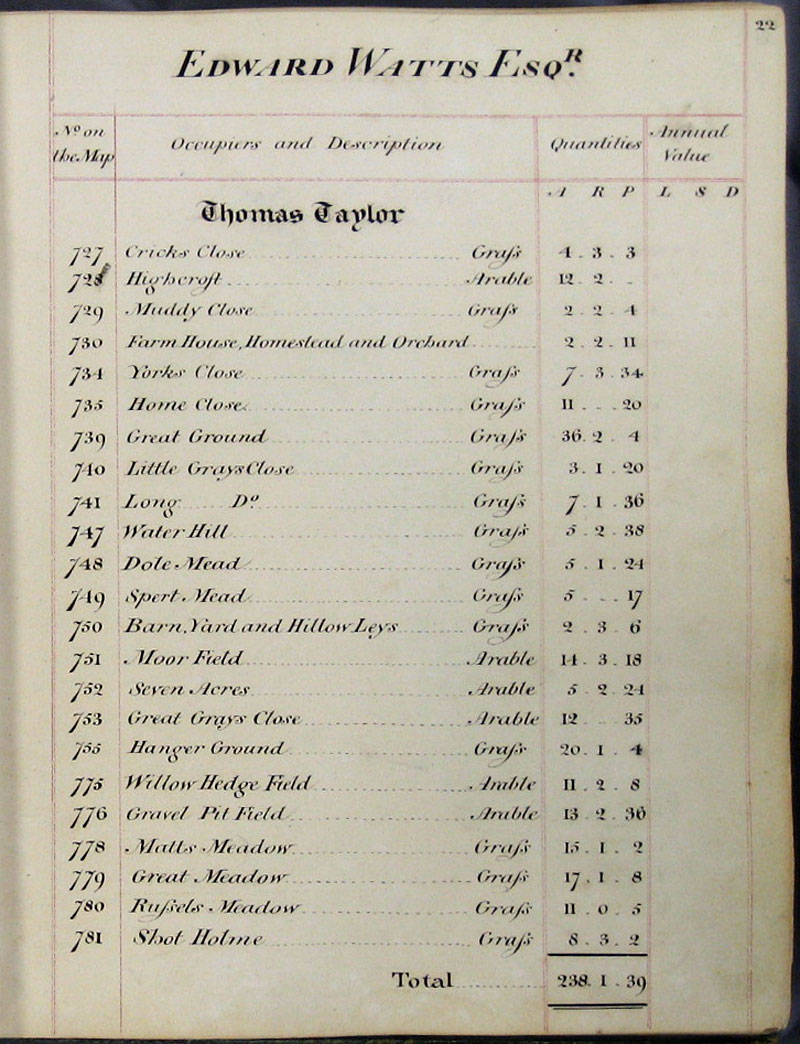 22
EDWARD WATTS ESQR.
No on the Map Occupiers and Description Quantities Annual Value
A R P L S D
Thomas Taylor
727 Cricks Close Graſs 4 . 3 . 3
728 Highcroft Arable 12 . 2 . .
729 Muddy Close Graſs 2 . 2 . 4
730 Farm House, Homestead and Orchard 2 . 2 . 11
734 Yorks Close Graſs 7 . 3 . 34
735 Home Close Graſs 11 . . . 20
739 Great Ground Graſs 36 . 2 . 4
740 Little Grays Close Graſs 3 . 1 . 20
741 Long Do Graſs 7 . 1 . 36
747 Water Hill Graſs 5 . 2 . 38
748 Dole Mead Graſs 5 . 1 . 24
749 Spert Mead Graſs 5 . . . 17
750 Barn, Yard and Hillow Leys Graſs 2 . 3 . 6
751 Moor Field Arable 14 . 3 . 18
752 Seven Acres Arable 5 . 2 . 24
753 Great Grays Close Arable 12 35
755 Hanger Ground Graſs 20 . 1 . 4
775 Willow Hedge Field Arable 11 . 2 . 8
776 Gravel Pit Field Arable 13 . 2 . 36
778 Matts Meadow Graſs 15 . 1 . 2
779 Great Meadow Graſs 17 . 1 . 8
780 Ruſsels Meadow Graſs 11 . 0 . 5
781 Shot Holme Graſs 8 . 3 . 2
Total 238 . 1 . 39